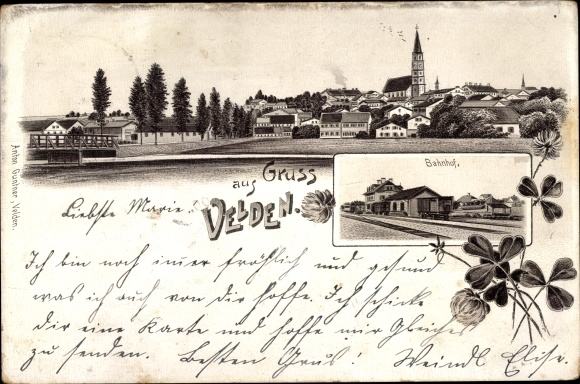 Anton Gunther, Velden.
Gruss
aus
VELDEN.
Bahnhof.
Liebste Marie!
Ich bin noch imer fröhlich und gesund
was ich auch von dir hoffe. Ich schicke
dir eine Karte und hoffe mir Gleiches
zu senden. Besten Grus! Weindl Elise.